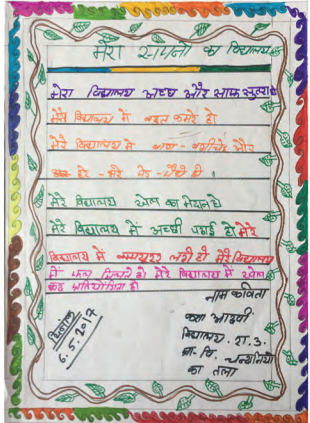 मेरा सपनो का विद्यालय
मेरा विद्यालय अच्छ और साफ सुतरा हो
मेरे विद्यालय में बहुत कमरे हो
मेरे विद्यालय में बाग - बगीचे और
हरे - भरे पेड़ - पौधे हो ।
मेरे विद्यालय खेल का मैदान हो
मेरे विद्यालय में अच्छी पढाई हो मेरे
विद्यालय में कम्प्यूटर लगी हो मेरे विद्यालय
में फल मिलते हो मेरे विद्यालय में खेल
कुद प्रतियोगिता हो
नाम कविता
कक्षा आठवी
विद्यालय . रा . उ .
प्रा . वि .
का तला
दिनांक
6.5.2017